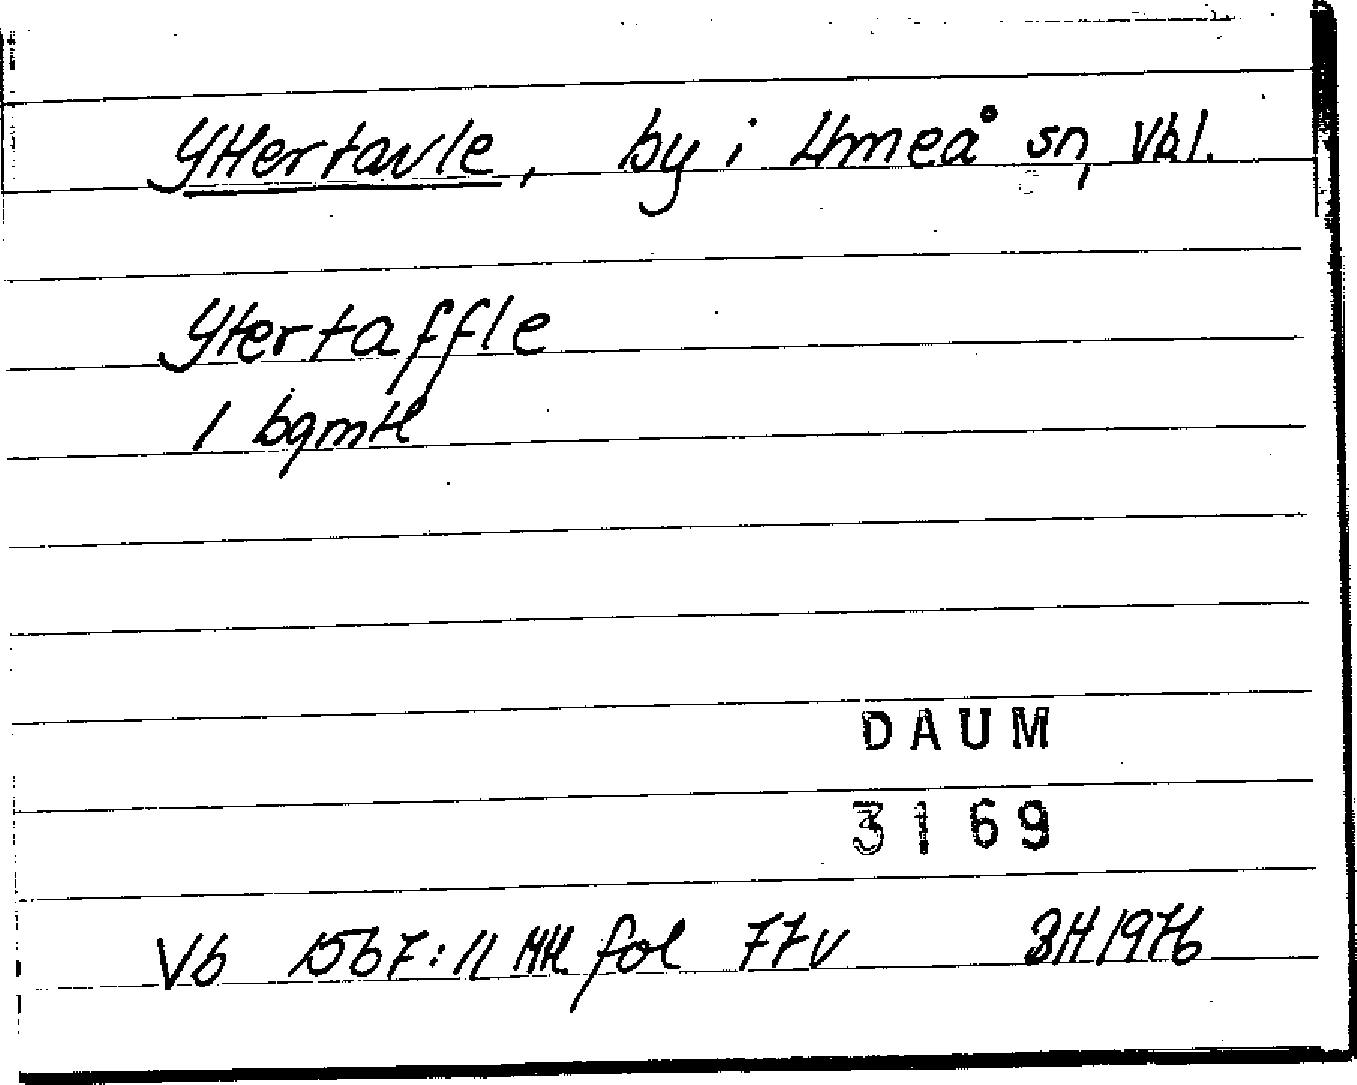 Yttertavle, by i Umeå sn, Vbl.
Ytertaffle
1 bgmtl
DAUM
3169
Vb 1567:11 Mtl fol 77v BH 1976